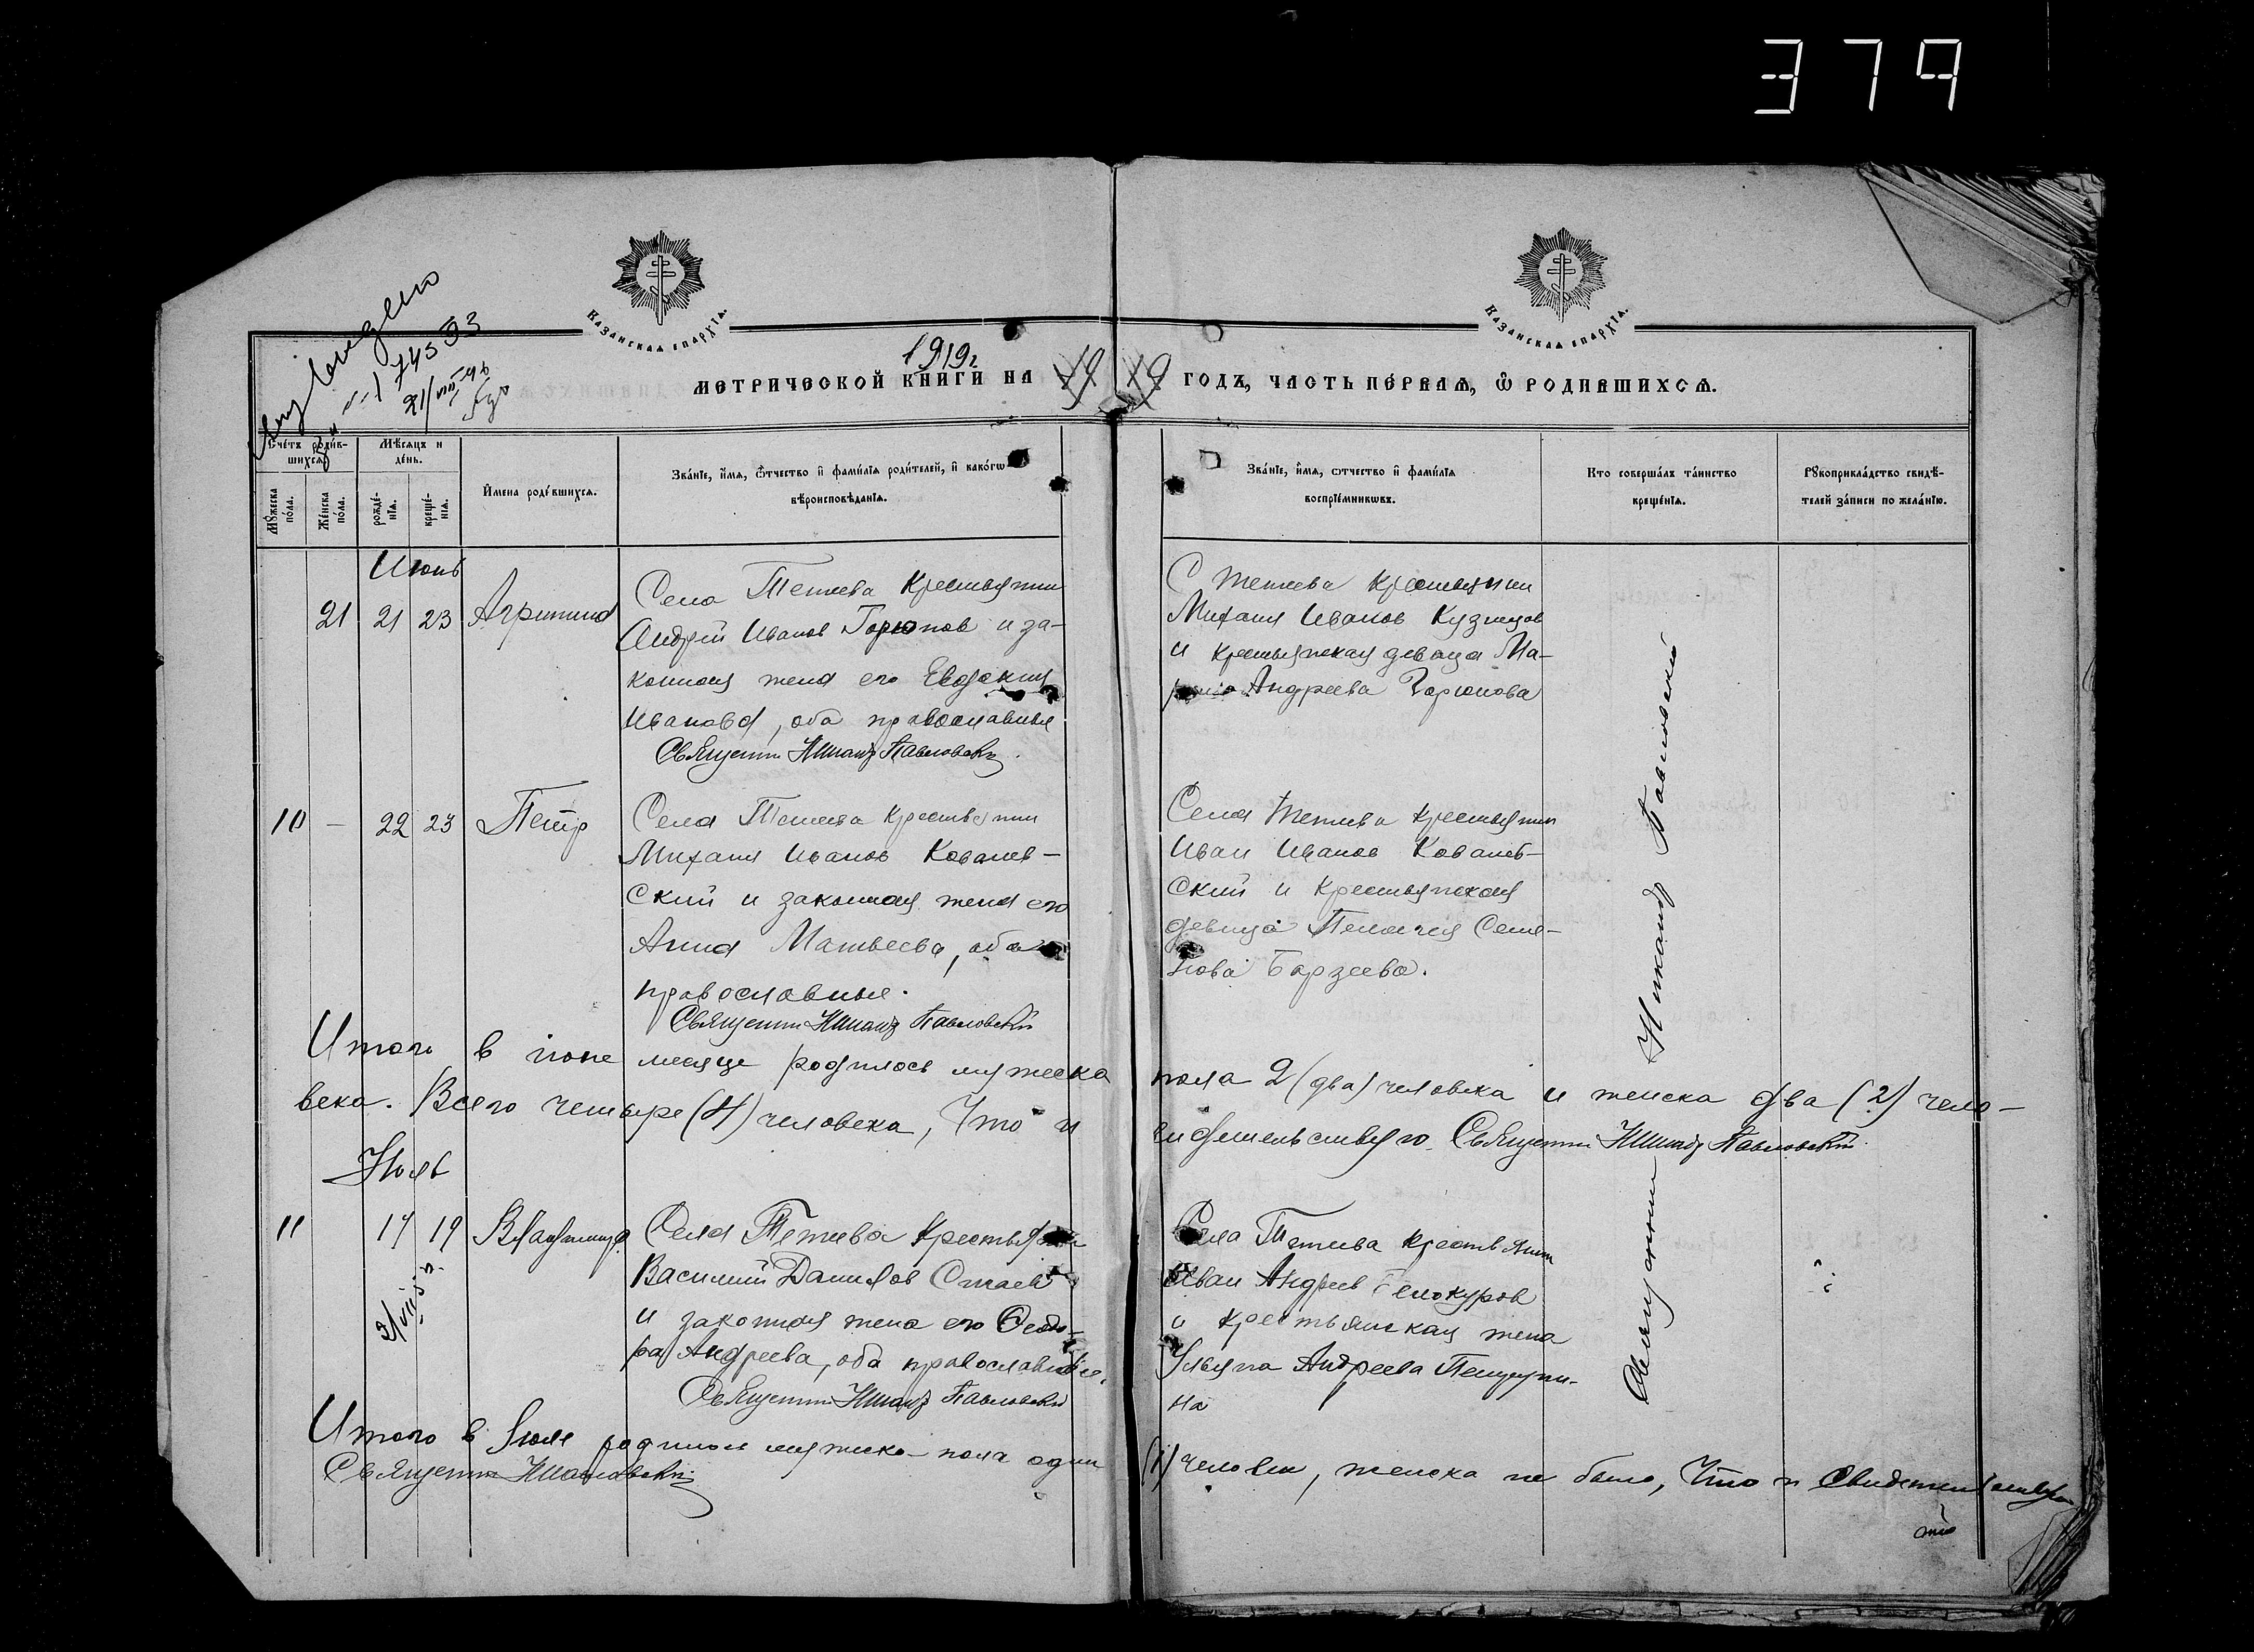 379
КАЗАНСКАЯ ЕПАРХІЯ.
КАЗАНСКАЯ ЕПАРХІЯ.
74593
1919 г.
МЕТРИЧЕСКОЙ КНИГИ НА 19 19 ГОДЪ, ЧАСТЬ ПЕРВАЯ, Ѽ РОДИВШИХСЯ.
Счётъ роди́вшихся.
Мѣсяцъ и де́нь.
Му́жеска по́ла.
Же́нска по́ла.
рожде́нія.
креще́нія.
И҆мена роди́вшихся.
Зва́ніе, и҆́мя, ѻ҆́тчество и҆ фами́лія роди́телей, и҆ како́гѡ
вѣроисповѣ́данія.
Зва́ніе, и҆́мя, ѻ҆́тчество и҆ фами́лія
воспріе́мникѡвъ.
Кто соверша́лъ та́инство
креще́нія.
Рꙋкоприкла́дство свидѣ́-
телей за́писи по жела́нію.
Июнь
21 21 23 Агрипина
Села Тетеева крестьянин
Андрей Иванов Горюнов и за-
конная жена его Евдокия
Иванова, оба православные
Священник Никандр Павловский.
С Тетеева крестьянин
Михаил Иванов Кузнецов
и крестьянская девица Ма-
Андреева Горюнова
10 — 22 23 Петр
Села Тетеева крестьянин
Михаил Иванов Ковалев-
ский и законная жена его
Анна Матвеева, оба
православные.
Священник Никандр Павловский
Села Тетеева крестьянин
Иван Иванов Ковалев-
ский и крестьянская
девица Пелагия Семе-
нова Барзеева.
Священник Никандр Павловский
Итого в июне месяце родилось мужеска пола 2 (два) человека и женска два (2) чело-
века. Всего четыре (4) человека, Что и свидетельствую. Священник Никандр Павловский
Июль
11 17 19 Владимир.
Села Тетеева крестьянин
Василий Данилов
и законная жена его Феодо-
ра Андреева, оба православные.
Священник Никандр Павловский
Села Тетеева крестьянин
Иван Андреев Белокуров
и крестьянская жена
Ульяна Андреева
на
Итого в Июле родилось мужеска пола один (1) человек, женска не было, Что и свидетельствую
Священник